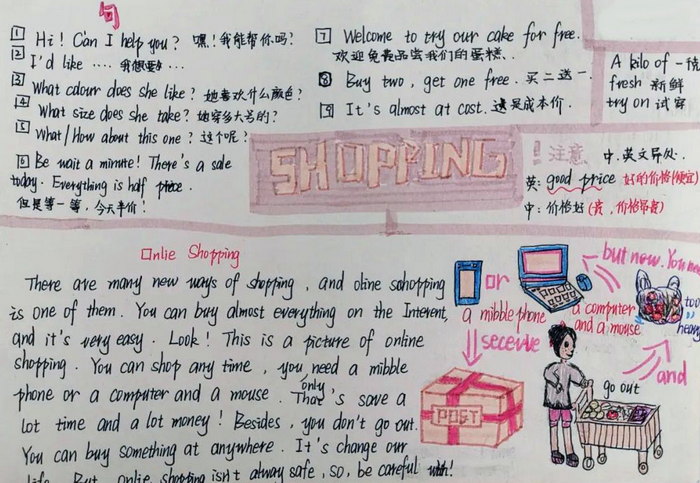 句
1 Hi! Can I help you? 嘿!我能帮你吗?
2 I'd like .... 我想要..
3 What colour does she like? 她喜欢什么颜色?
4 What size does she take? 她穿多大号的?
5 What/How about this one? 这个呢?
6 Be wait a minute! There's a sale
today. Everything is half price.
但是等一等,今天半价!
7 Welcome to try our cake for free.
欢迎免费品尝我们的蛋糕..
8 Buy two, get one free. 买二送一.
9 It's almost at cost. 这是成本价.
A kilo of 一千克
fresh 新鲜
try on 试穿
SHOPPING
! 注意 中.英文异处.
英: good price 好的价格(便宜)
中: 价格好(贵,价格昂贵)
Onlie Shopping
There are many new ways of shopping, and oline sohopping
is one of them. You can buy almost everything on the Interent,
and it's very easy. Look! This is a picture of online
shopping. You can shop any time, you need a mibble
phone or a computer and a mouse. only That's save a
lot time and a lot money! Besides, you don't go out.
You can buy something at anywhere. It's change our
life. But, onlie shopping isn't alway safe, so, be careful
or
a mibble phone
a computer
and a mouse.
but now. You
too
heavy
secevive
POST
go out
and